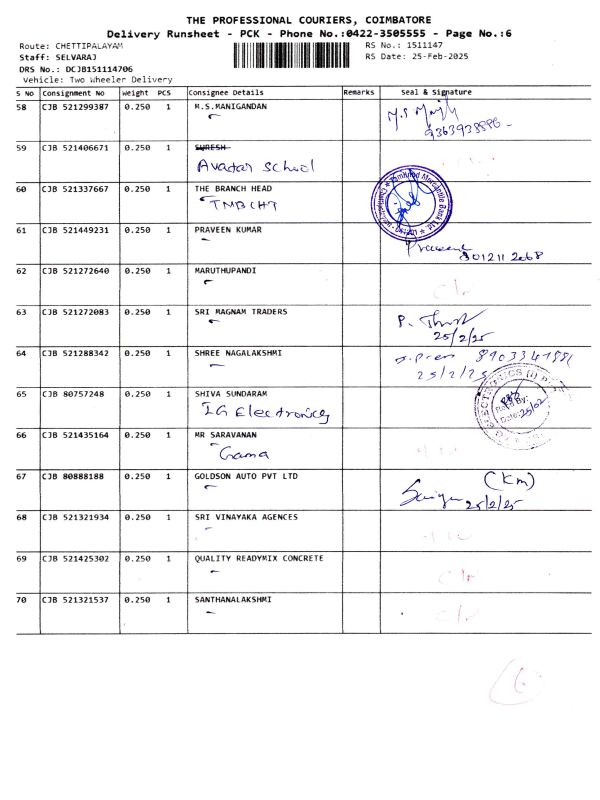 THE PROFESSIONAL COURIERS, COIMBATORE
Delivery Runsheet - PCK - Phone No.:0422-3505555 - Page No.:6
Route: CHETTIPALAYAM RS No.: 1511147
Staff: SELVARAJ RS Date: 25-Feb-2025
DRS No.: DCJB151114706
Vehicle: Two Wheeler Delivery
S No Consignment No Weight PCS Consignee Details Remarks Seal & Signature
58 CJB 521299387 0.250 1 M.S.MANIGANDAN
59 CJB 521406671 0.250 1 SURESH
Avadar School
60 CJB 521337667 0.250 1 THE BRANCH HEAD
TMBCHT
61 CJB 521449231 0.250 1 PRAVEEN KUMAR
62 CJB 521272640 0.250 1 MARUTHUPANDI
63 CJB 521272083 0.250 1 SRI MAGNAM TRADERS
25/2/25
64 CJB 521288342 0.250 1 SHREE NAGALAKSHMI
25/2/25
65 CJB 80757248 0.250 1 SHIVA SUNDARAM
IG Electronics
66 CJB 521435164 0.250 1 MR SARAVANAN
Gama
67 CJB 80888188 0.250 1 GOLDSON AUTO PVT LTD (Km)
25/2/25
68 CJB 521321934 0.250 1 SRI VINAYAKA AGENCES
69 CJB 521425302 0.250 1 QUALITY READYMIX CONCRETE
70 CJB 521321537 0.250 1 SANTHANALAKSHMI
6